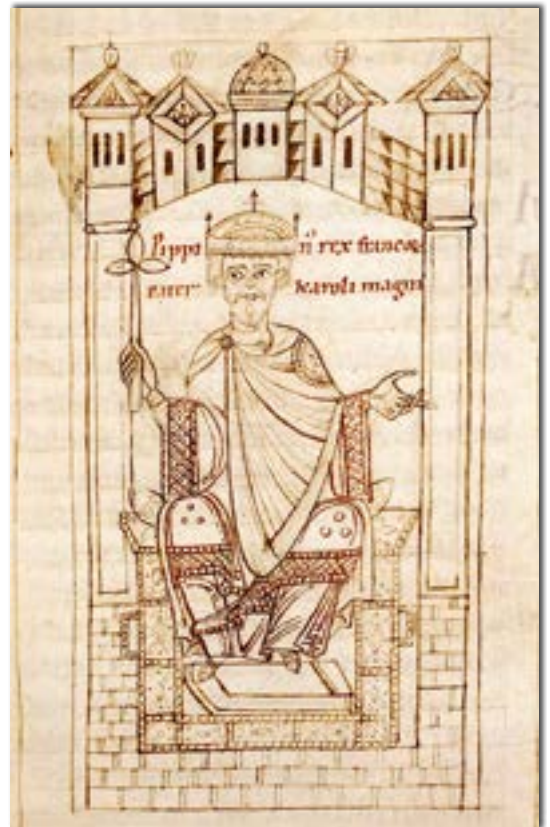 Pippi n rex francoꝝ
pater karoli magni